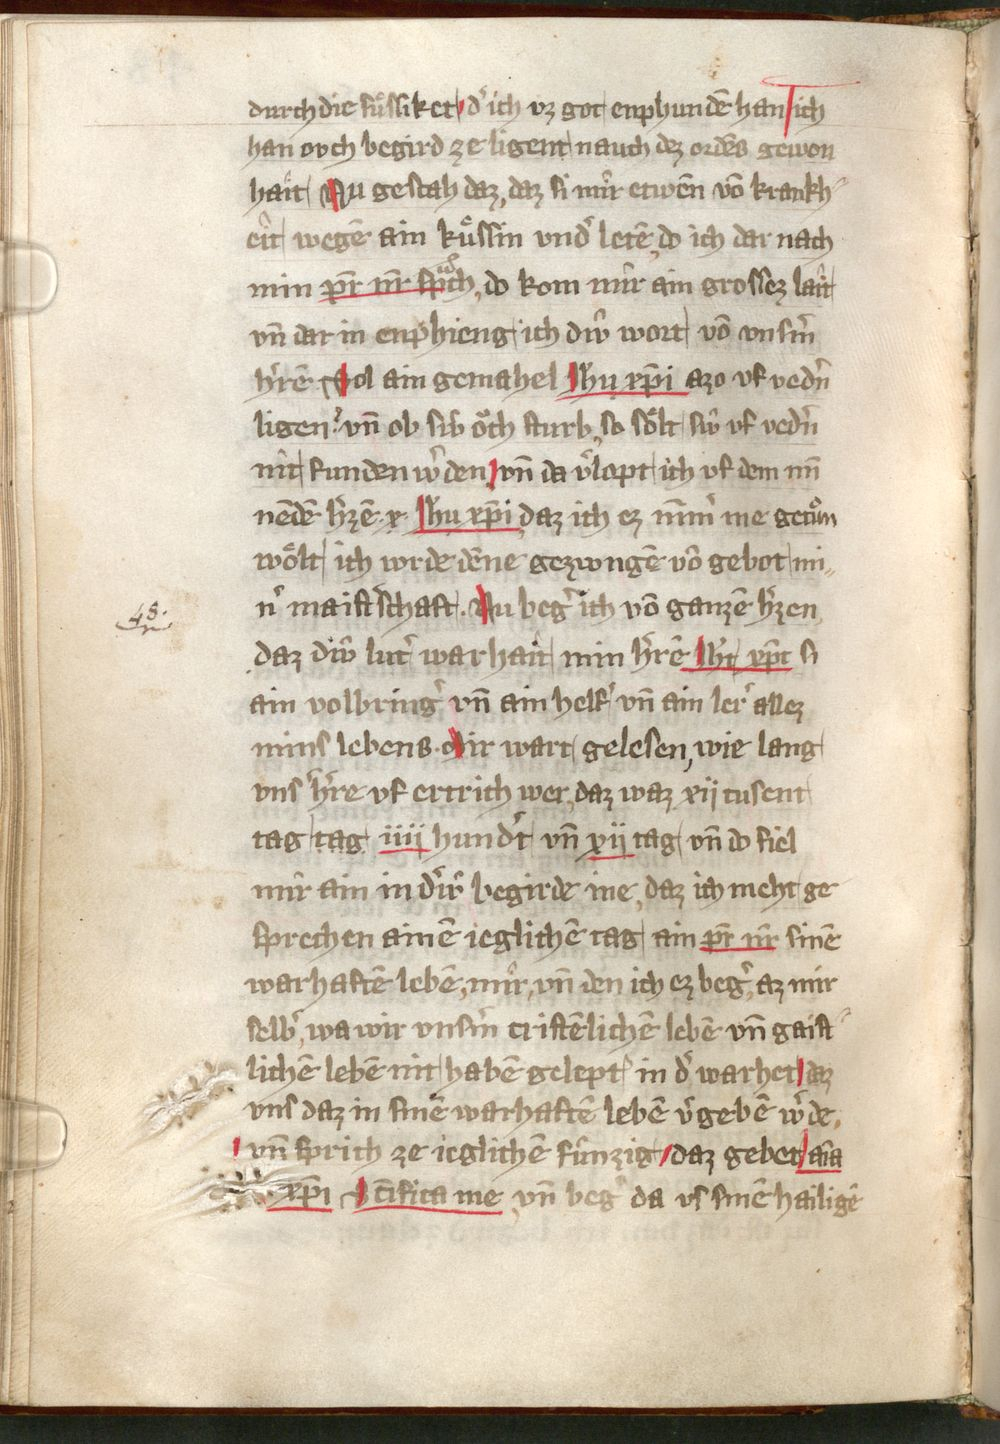 durch die suͤssiket dͤ ich vz got enphundē han Ich
han och begird ze ligent nauch dez ordēs gewon
haͤit Nu geſcah daz, daz ſi mir etwen vō krankh⸗
eit wegē ain kuͤſſin vndͤ letē, do ich dar nach
min pr̄ nr̄ ſpͣch, do kom mir ain groſſez lait
vn̄ dar in enphieng ich diw̍ wort vō vnſm̄
h̍rē Sol ain gemahel Ihu xp̄i azo vf vedn̍
ligen? vn̄ ob ſiv oͤch ſturb, ſo ſoͤlt ſiw̍ vf vedn̍
nit funden w̍den, vn̄ da v̍lopt ich vf dem mī
nēdē h̍zē Ihu xp̄i, daz ich ez nim̄ me getuͦn
woͤlt ich wrde dēne gezwngē vō gebot mi⸗
n̍ maiſt̍ſchaft. Nu beg̍ ich vō ganzē h̍zen
48.
daz diw̍ lut̍ warhait min h̍rē Ih̍c xp̄c ſi
ain volbring̍ vn̄ ain helf̍ vn̄ ain ler̍ allez
mins lebens. Mir wart geleſen, wie lang
vnſ h̍re vf ertrich wer, daz waz xij tuſent
tag tag iiij hundͤt vn̄ xij tag vn̄ do fiel
mir ain in dͤir̍ begirde ine, daz ich meht ge
ſprechen ainē ieglichē tag ain pr̄ nr̄ ſinē
warhaftē lebē, mir, vn̄ den ich ez beg̍, az mir
ſelb̍, wa wir vnſm̄ criſtēlichē lebē vn̄ gaiſt⸗
lichē lebē nit habē gelept in dͤ warhet, daz
vns daz in ſinē warhaftē lebē v̍gebē w̍de,
vn̄ ſprich ze ieglichē fúnzig daz gebet aīa
xp̄i ſc̄ifica me, vn̄ beg̍ da vſ ſinē hailigē